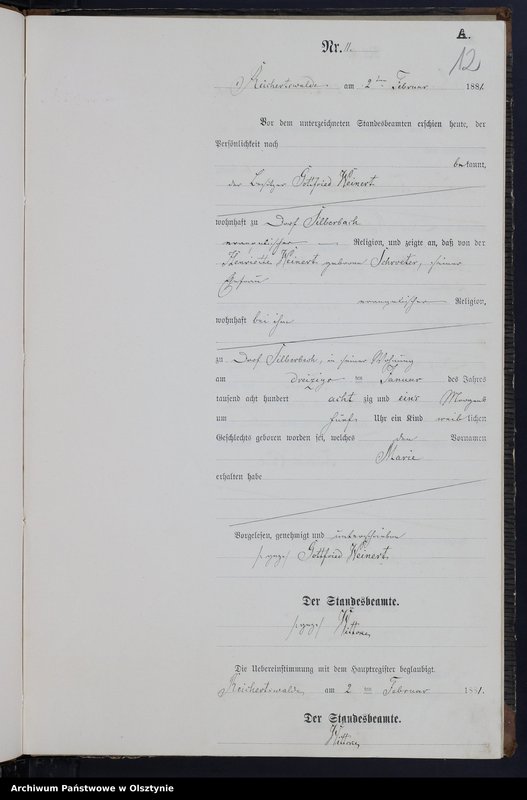 A.
Nr. 11.
12
Reichertswalde am 2ten Februar 1881.
Vor dem unterzeichneten Standesbeamten erschien heute, der
Persönlichkeit nach
bekannt,
der Besitzer Gottfried Weinert
wohnhaft zu Dorf Silberbach
evangelischer Religion, und zeigte an, daß von der
Henriette Weinert geborene Schroeter, seiner
Ehefrau
evangelischer Religion,
wohnhaft bei ihm
zu Dorf Silberbach, in seiner Wohnung
am dreißigsten Januar des Jahres
tausend acht hundert achtzig und eins Morgens
um fünf Uhr ein Kind weiblichen
Geschlechts geboren worden sei, welches den Vornamen
Marie
erhalten habe
Vorgelesen, genehmigt und unterschrieben
/:gez:/ Gottfried Weinert.
Der Standesbeamte.
/:gez:/
Die Uebereinstimmung mit dem Hauptregister beglaubigt.
Reichertswalde am 2ten Februar 1881.
Der Standesbeamte.
Archiwum Państwowe w Olsztynie